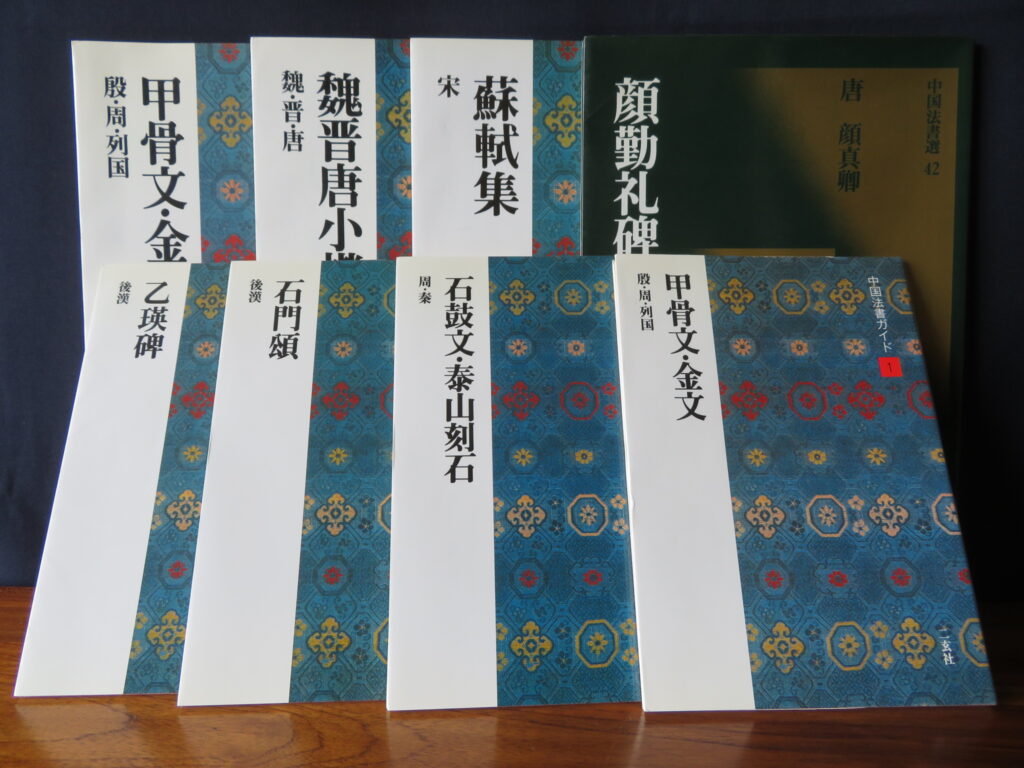 甲骨文・金
殷・周・列国
魏晋唐小楷
魏・晋・唐
蘇軾集
宋
中国法書選 42
唐 顔真卿
顔勤礼碑
乙瑛碑
後漢
石門頌
後漢
石鼓文・泰山刻石
周・秦
中国法書ガイド 1
甲骨文・金文
殷・周・列国
二玄社